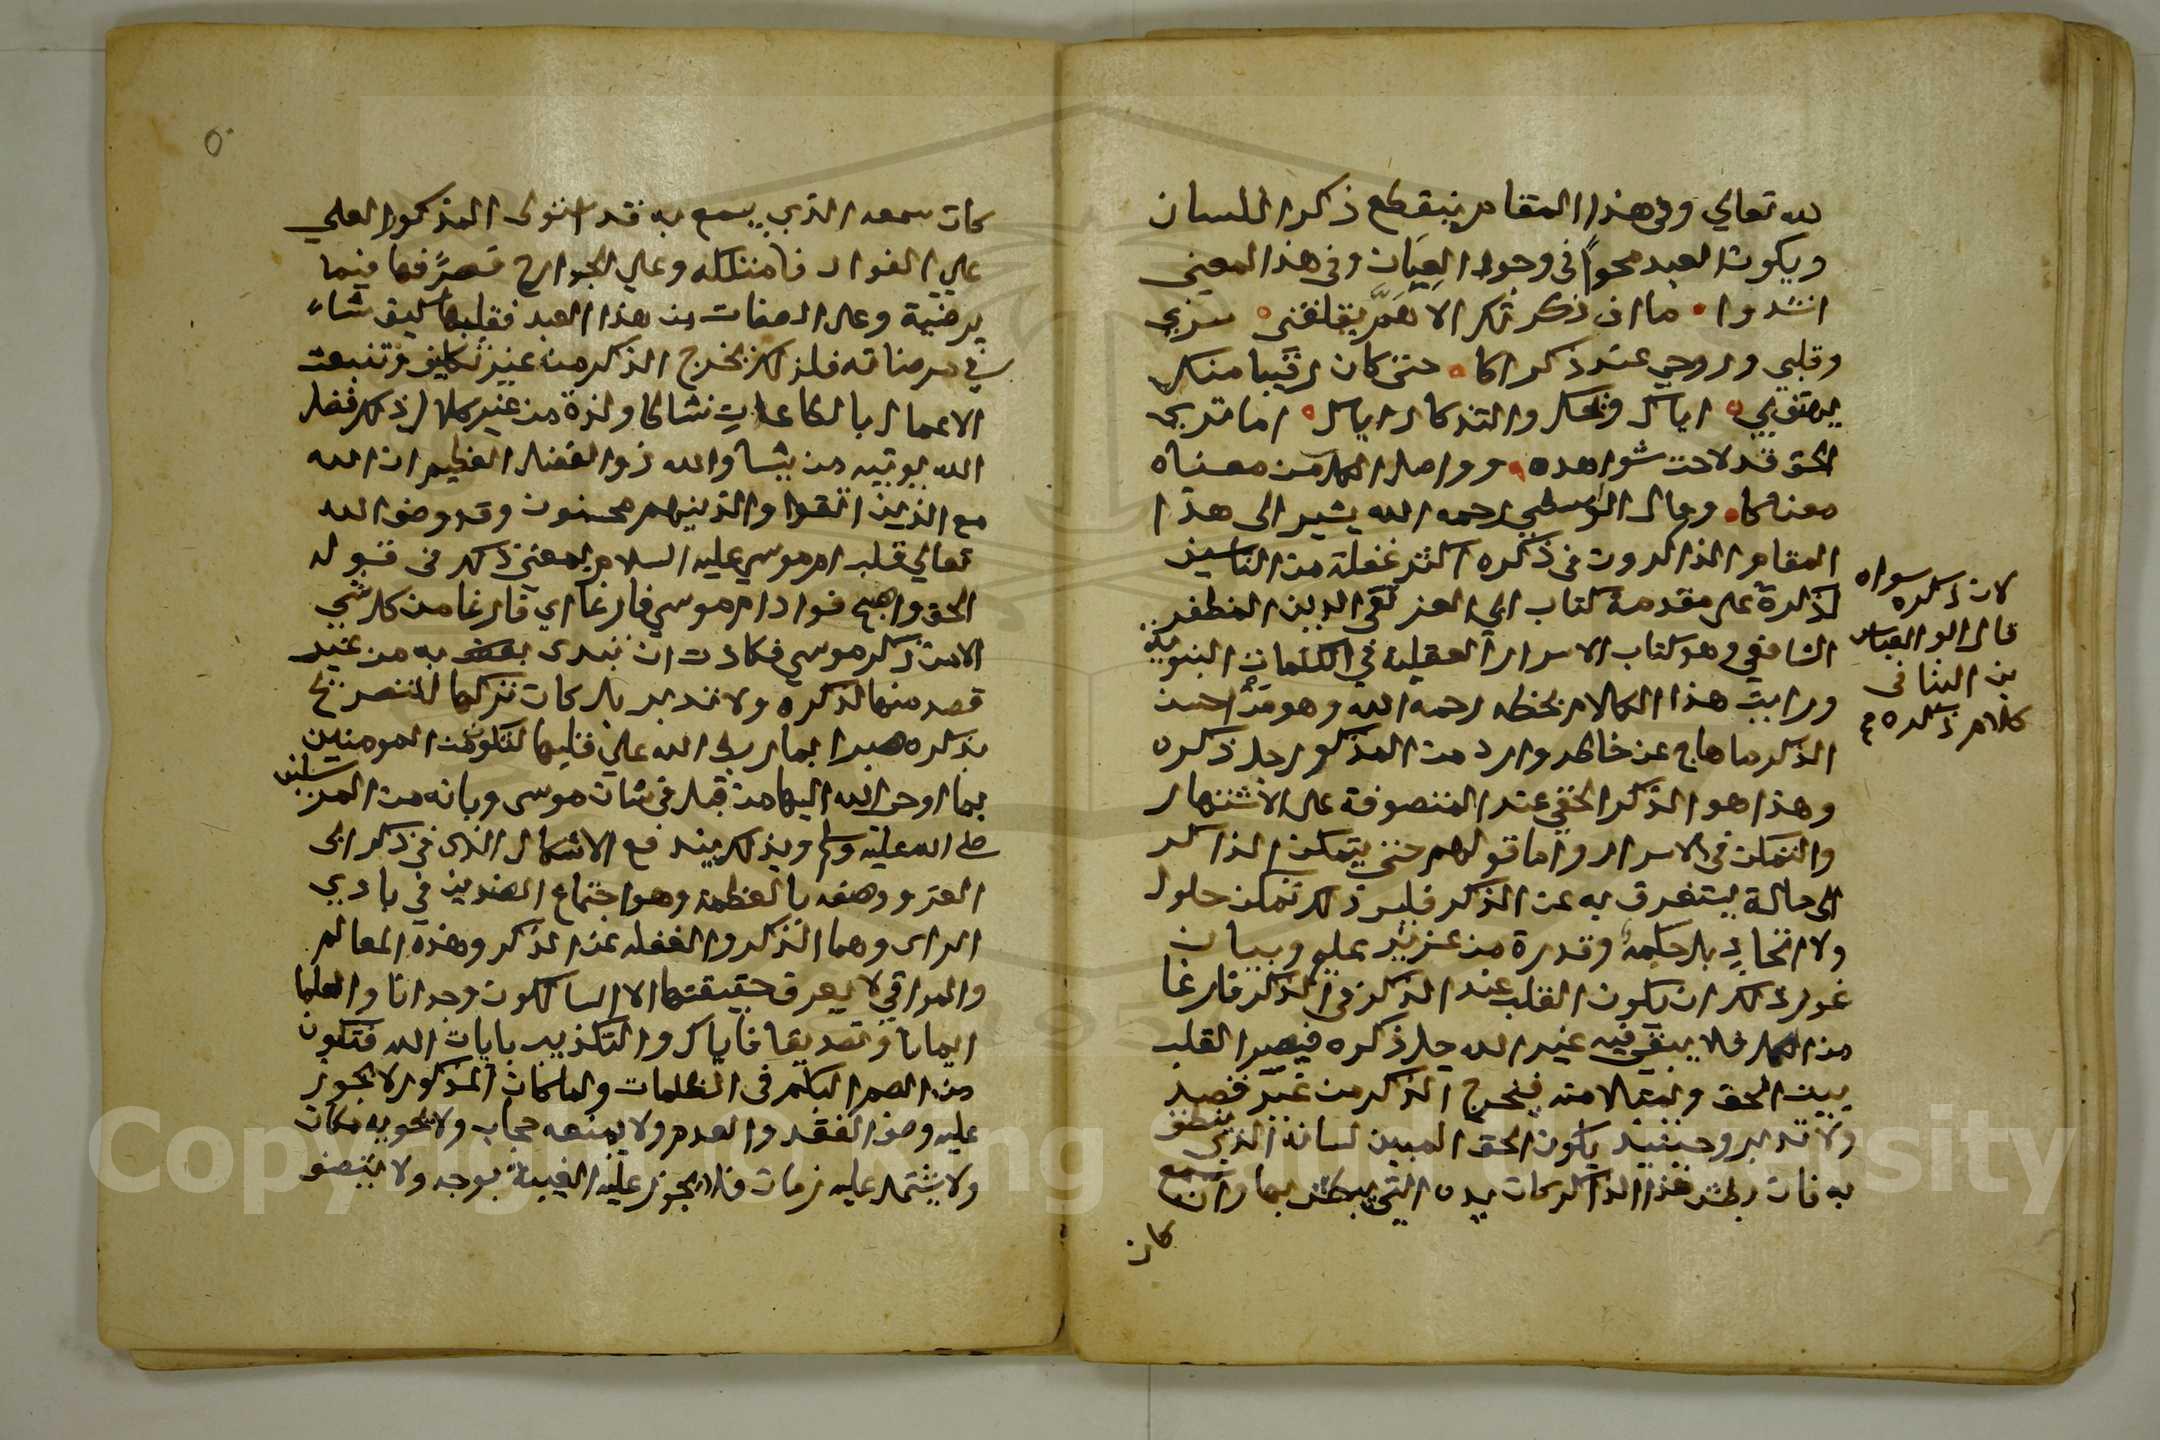 لله تعالي وفي هذا المقام ينقطع ذكر اللسان
ويكون العبد محواً في وجود العيان وفي هذا المعني
انشدوا ما ان ذكرتك الا هَمَّ يقلقني سري
وقلبي وروحي عند ذكراكا حتي كان رقيبا منك
يهتف بي اياك ويحك والتذكار اياك اما تري
الحق قد لاحت شواهده وواصل الكل من معناه
معناكا وقال الواسطي رحمه الله يشير الى هذا
المقام الذاكرون في ذكره اكثر غفلة من الناسين
لذكره علي مقدمة كتاب ابي العز تقي الدين المظفر
الشافعي وهو كتاب الاسرار العقلية في الكلمات النبوية
ورايت هذا الكلام بخطه رحمه الله وهو من احسن
الذكر ما هاج عن خاطر وارد من المذكور جل ذكره
وهذا هو الذكر الخفي عند المتصوفة على الاشتهار
والتمكن في الاسرار واما قولهم حتي يتمكن الذاكر
الى حالة يستغرق به عن الذكر فليس ذلك تمكن حلول
ولا اتحاد بل حكمة وقدرة من عزيز عليم وبيان
غور ذلك ان يكون القلب عند الذكر في الذكر فارغا
من الكل فلا يبقي فيه غير الله جل ذكره فيصير القلب
بيت الحق ويمتلا منه فيخرج الذكر من غير قصد
ولا تدبر وحينئذ يكون الحق المبين لسانه الذي ينطق
به فان بطش هذا الذاكر كان يده التي يبطش بها وان سمع
كان
لان ذكره سواه
قال ابو العباس
بن البنا في
كلام ذكره
٥٠
كان سمعه الذي يسمع به قد استولى المذكور العلي
علي الفواد فامتلكه وعلي الجوارح فصرَّفها فيما
يرضيه وعلى الصفات من هذا العبد فقلبها كيف شاء
في مرضاته فلذلك يخرج الذكر منه من غير تكليف وتنبعث
الاعمال بالطاعات نشاطا ولذة من غير كلال ذلك فضل
الله يوتيه من يشا والله ذو الفضل العظيم ان الله
مع الذين اتقوا والذين هم محسنون وقد وصف الله
تعالي قلب ام موسي عليه السلام بمعني ذلك في قوله
الحق واصبح فواد ام موسي فارغا اي فارغا من كل شي
الا من ذكر موسي فكادت ان تبدى به من غير
قصد منها لذكره ولا تدبر بل كان تركها للتصريح
بذكره صبرا بما ربط الله علي قلبها لتكون من المومنين
بما اوحى الله اليها من قبل في شان موسى وبانه من المرسلين
صلى الله عليه وسلم وبذلك يندفع الاشكال الذي في ذكر ابي
العز ووصفه بالعظمة وهو اجتماع الضدين في بادي
الراى وهما الذكر والغفلة عن الذكر وهذه المعالم
والمراقي لا يعرف حقيقتها الا السالكون وجدانا والعلما
ايمانا وتصديقا فاياك والتكذيب بايات الله فتكون
من الصم البكم في الظلمات ولما كان المذكور لا يجوز
عليه وصف الفقد والعدم ولا يمنعه حجاب ولا يحويه مكان
ولا يشتمل عليه زمان فلا يجوز عليه الغيبة بوجه ولا يتصف